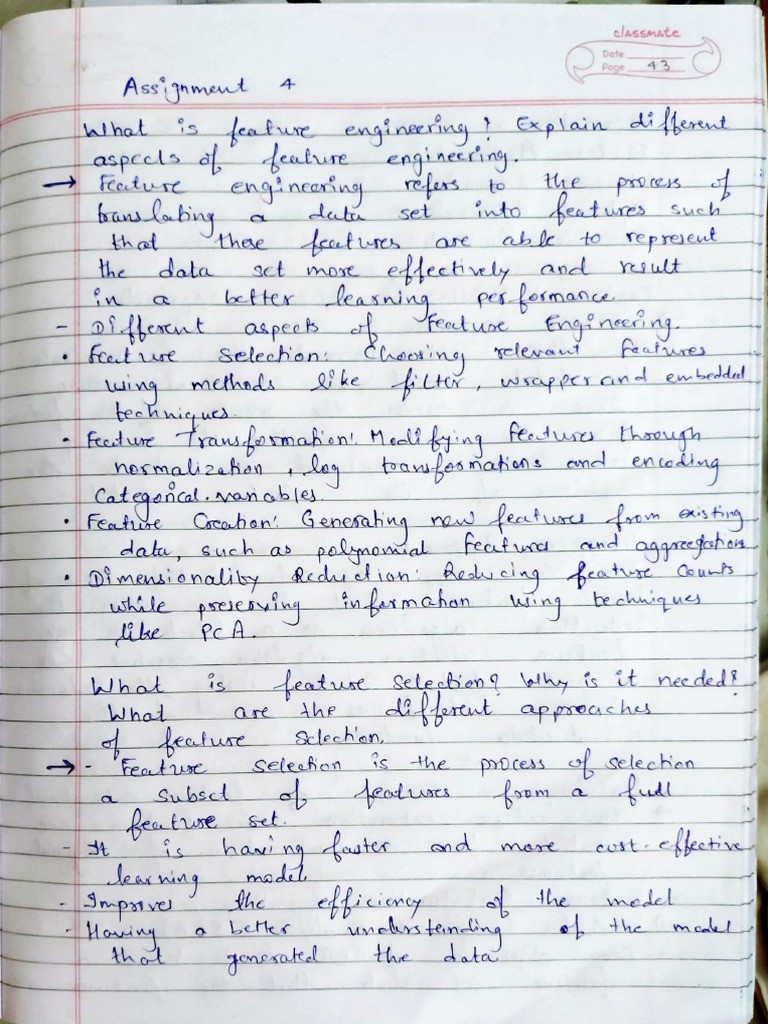 classmate
Date
Page 43
Assignment 4
What is feature engineering? Explain different
aspects of feature engineering.
→ Feature engineering refers to the process of
translating a data set into features such
that these features are able to represent
the data set more effectively and result
in a better learning performance.
- Different aspects of Feature Engineering.
• Feature Selection: Choosing relevant features
using methods like filter, wrapper and embedded
techniques.
• Feature Transformation: Modifying features through
normalization, log transformations and encoding
Categorical variables.
• Feature Creation: Generating new features from existing
data, such as polynomial features and aggregations
• Dimensionality Reduction: Reducing feature Counts
while preserving information using techniques
like PCA.
What is feature selection? Why is it needed?
What are the different approaches
of feature selection.
→ - Feature selection is the process of selection
a subset of features from a full
feature set.
- It is having faster and more cost-effective
learning model
- Improves the efficiency of the model
- Having a better understanding of the model
that generated the data